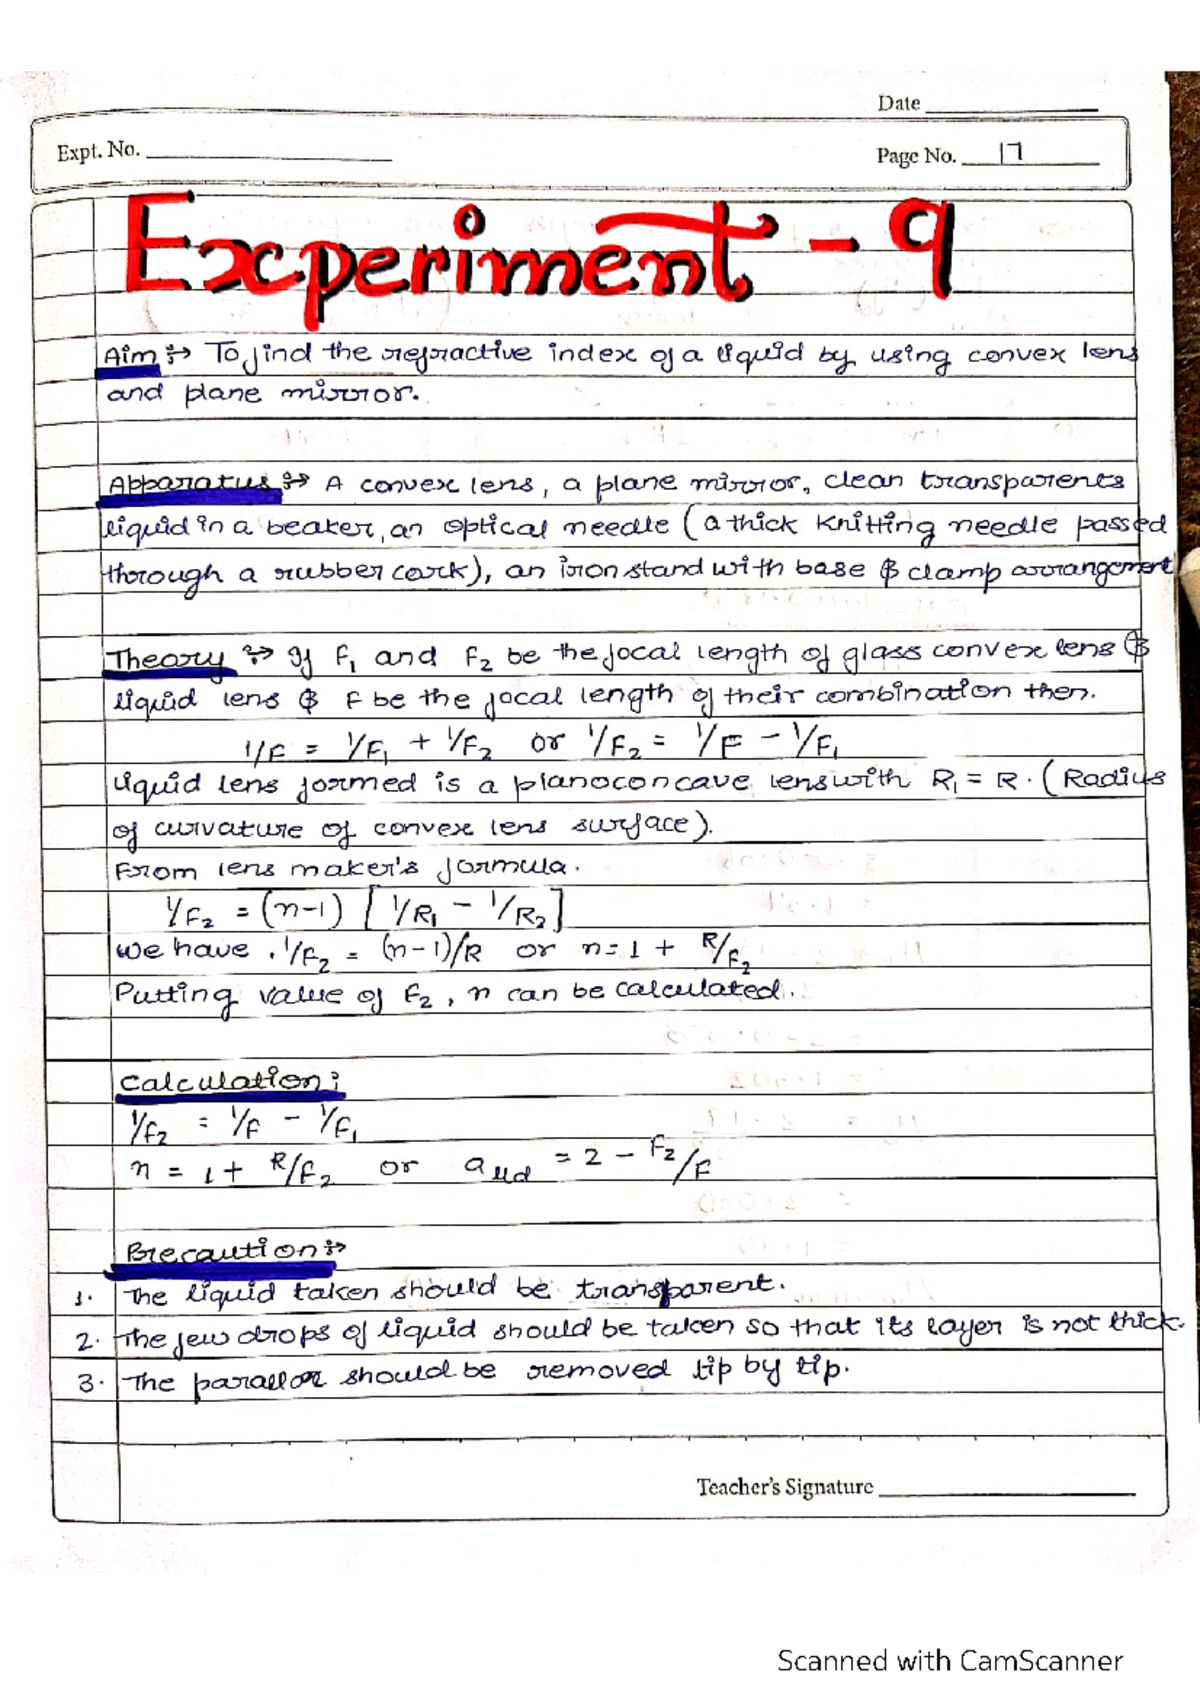 Date
Expt. No.
Page No. 17
Experiment - 9
Aim :→ To find the refractive index of a liquid by using convex lens
and plane mirror.
Apparatus :→ A convex lens, a plane mirror, clean transparents
liquid in a beaker, an optical needle (a thick knitting needle passed
through a rubber cork), an iron stand with base & clamp arrangement
Theory :→ If F₁ and F₂ be the focal length of glass convex lens &
liquid lens & F be the focal length of their combination then.
1/F = 1/F₁ + 1/F₂ or 1/F₂ = 1/F - 1/F₁
Liquid lens formed is a planoconcave lens with R₁ = R. (Radius
of curvature of convex lens surface).
From lens maker's formula.
1/F₂ = (n-1) [1/R₁ - 1/R₂]
we have, 1/F₂ = (n-1)/R or n=1 + R/F₂
Putting value of F₂, n can be calculated.
Calculation:
1/F₂ = 1/F - 1/F₁
n = 1+ R/F₂ or aμd = 2 - F₂/F
Precaution :→
1. The liquid taken should be transparent.
2. The few drops of liquid should be taken so that its layer is not thick.
3. The parallox should be removed tip by tip.
Teacher's Signature
Scanned with CamScanner